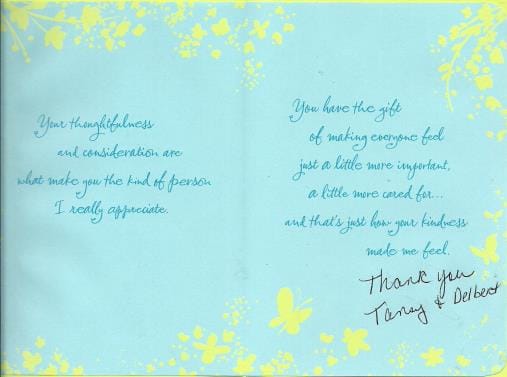 Your thoughtfulness
and consideration are
what make you the kind of person
I really appreciate.
You have the gift
of making everyone feel
just a little more important,
a little more cared for...
and that's just how your kindness
made me feel.
Thank you
Tansy & Delbert